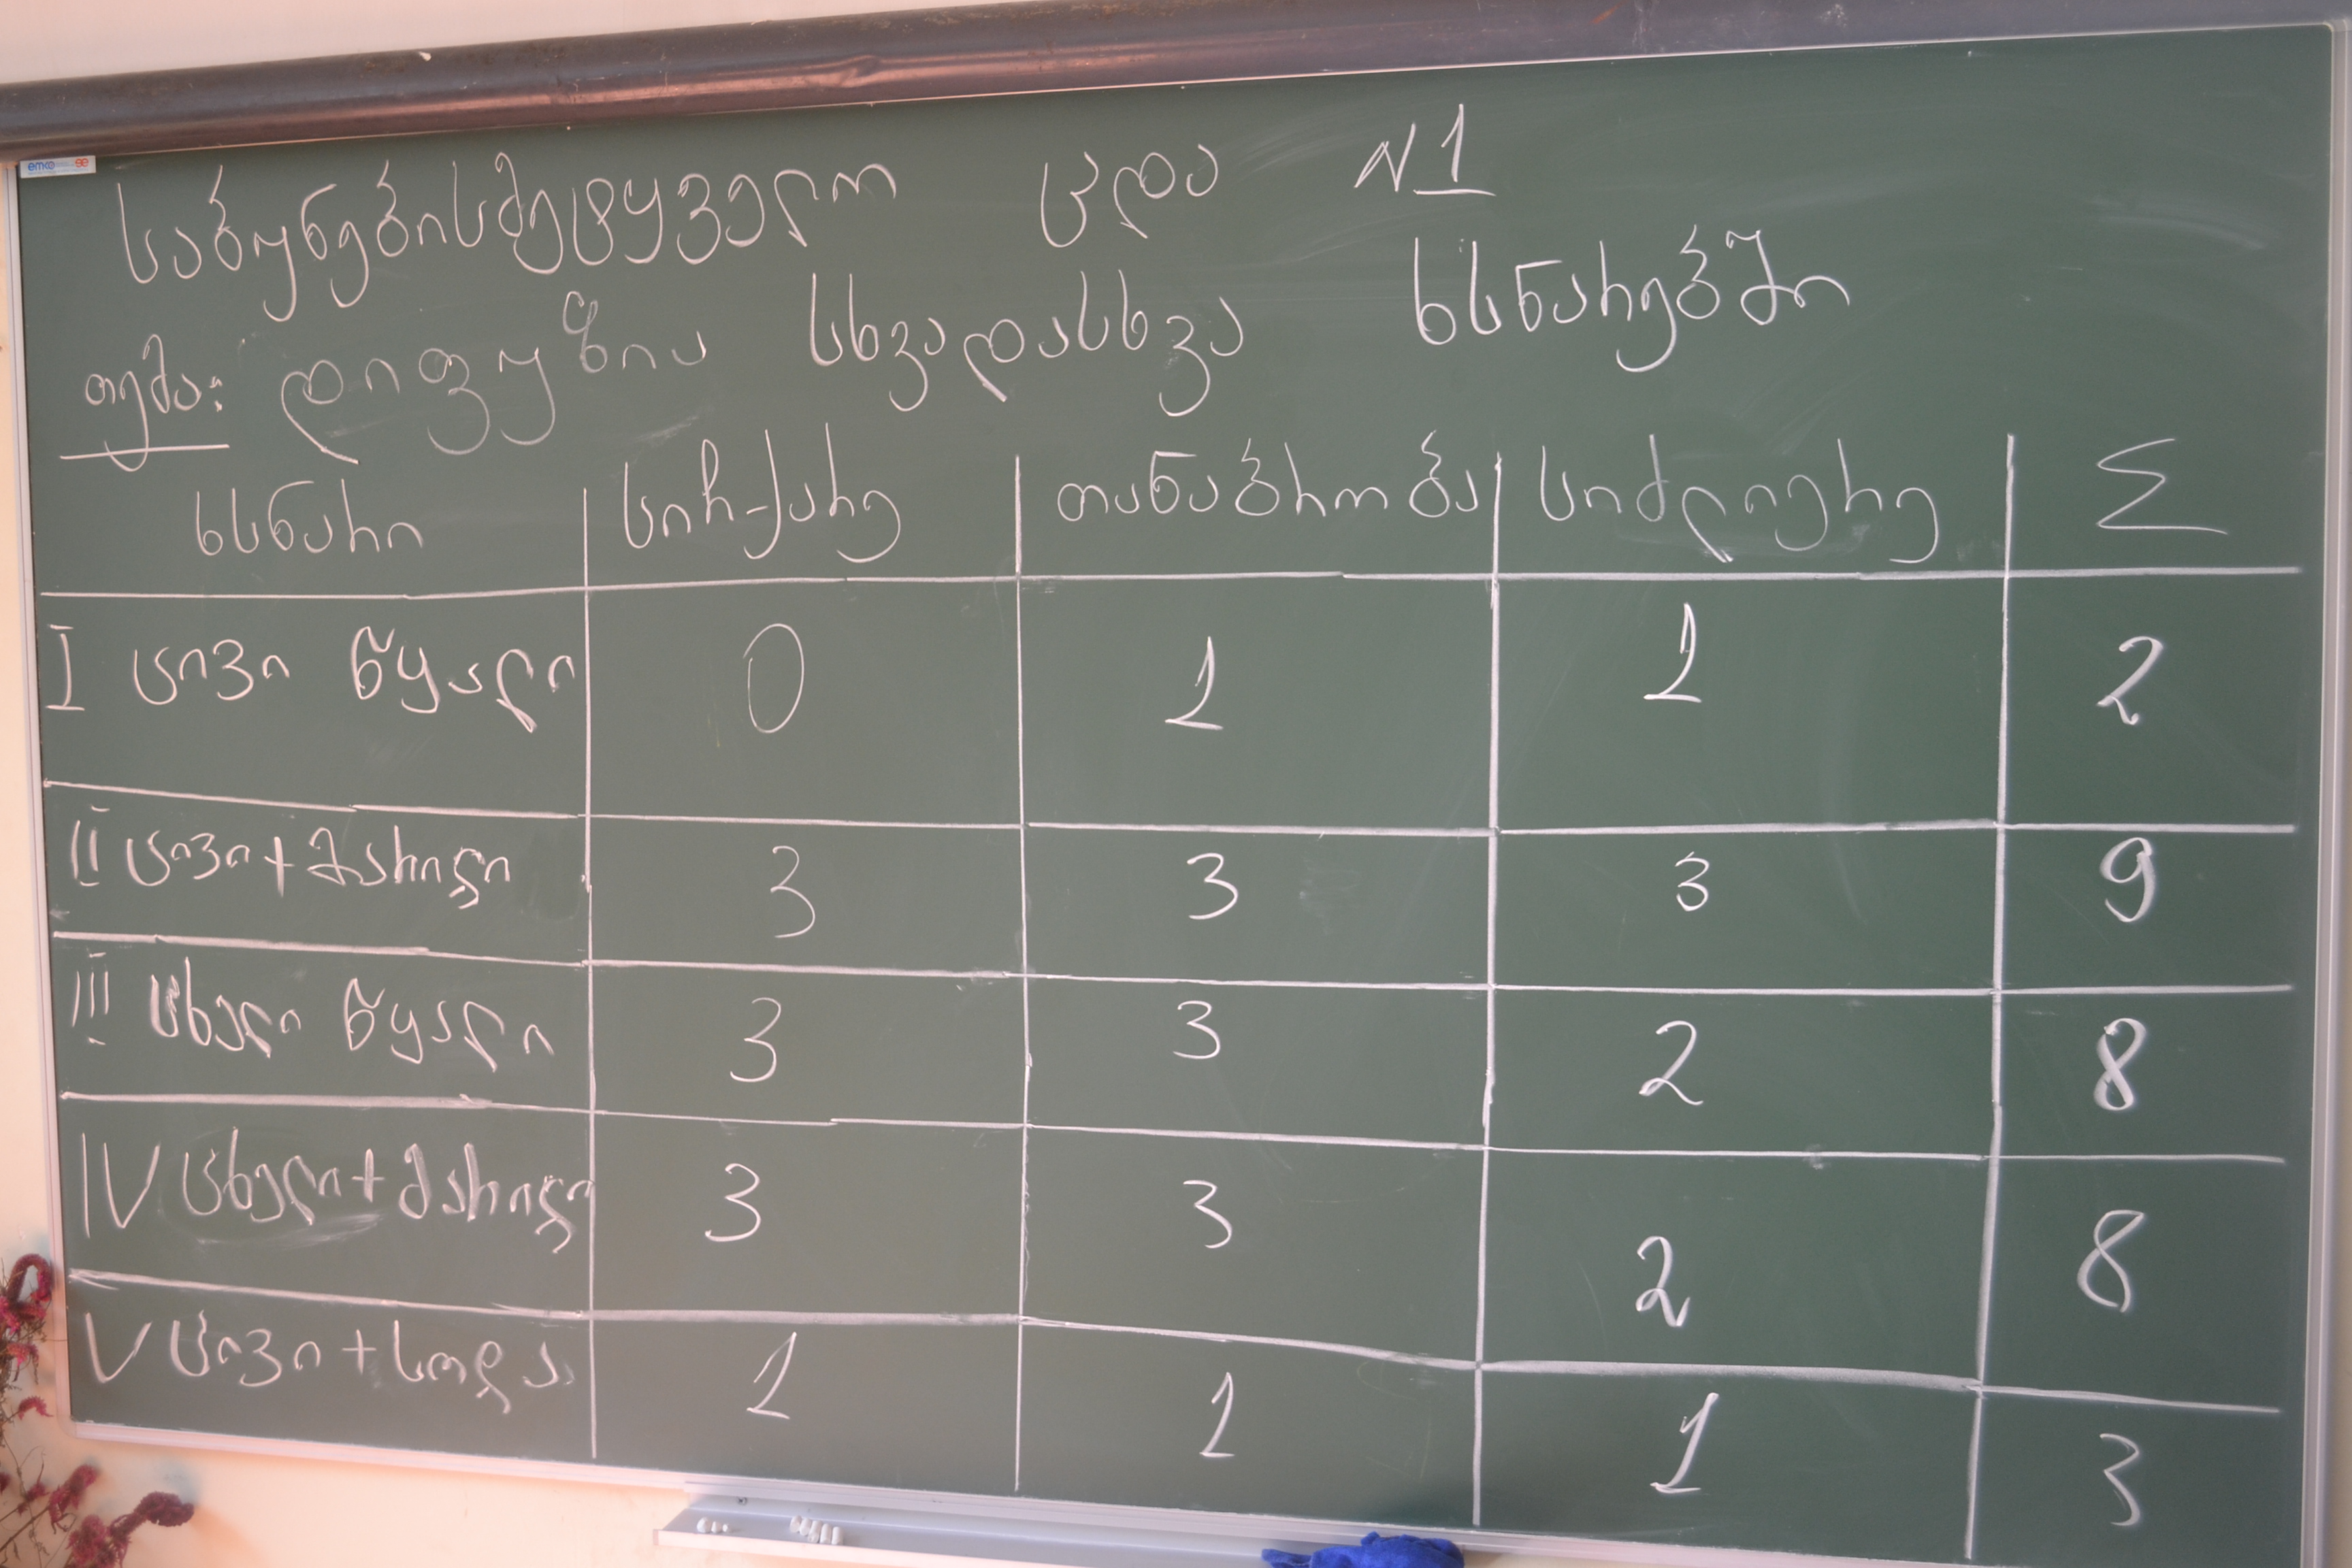 საბუნებისმეტყველო ცდა N1
თემა: დიფუზია სხვადასხვა ხსნარებში
ხსნარი სიჩქარე თანაბრობა სიძლიერე Σ
I ცივი წყალი 0 1 1 2
II ცივი + მარილი 3 3 3 9
III ცხელი წყალი 3 3 2 8
IV ცხელი + მარილი 3 3 2 8
V ცივი + სოდა 1 1 1 3